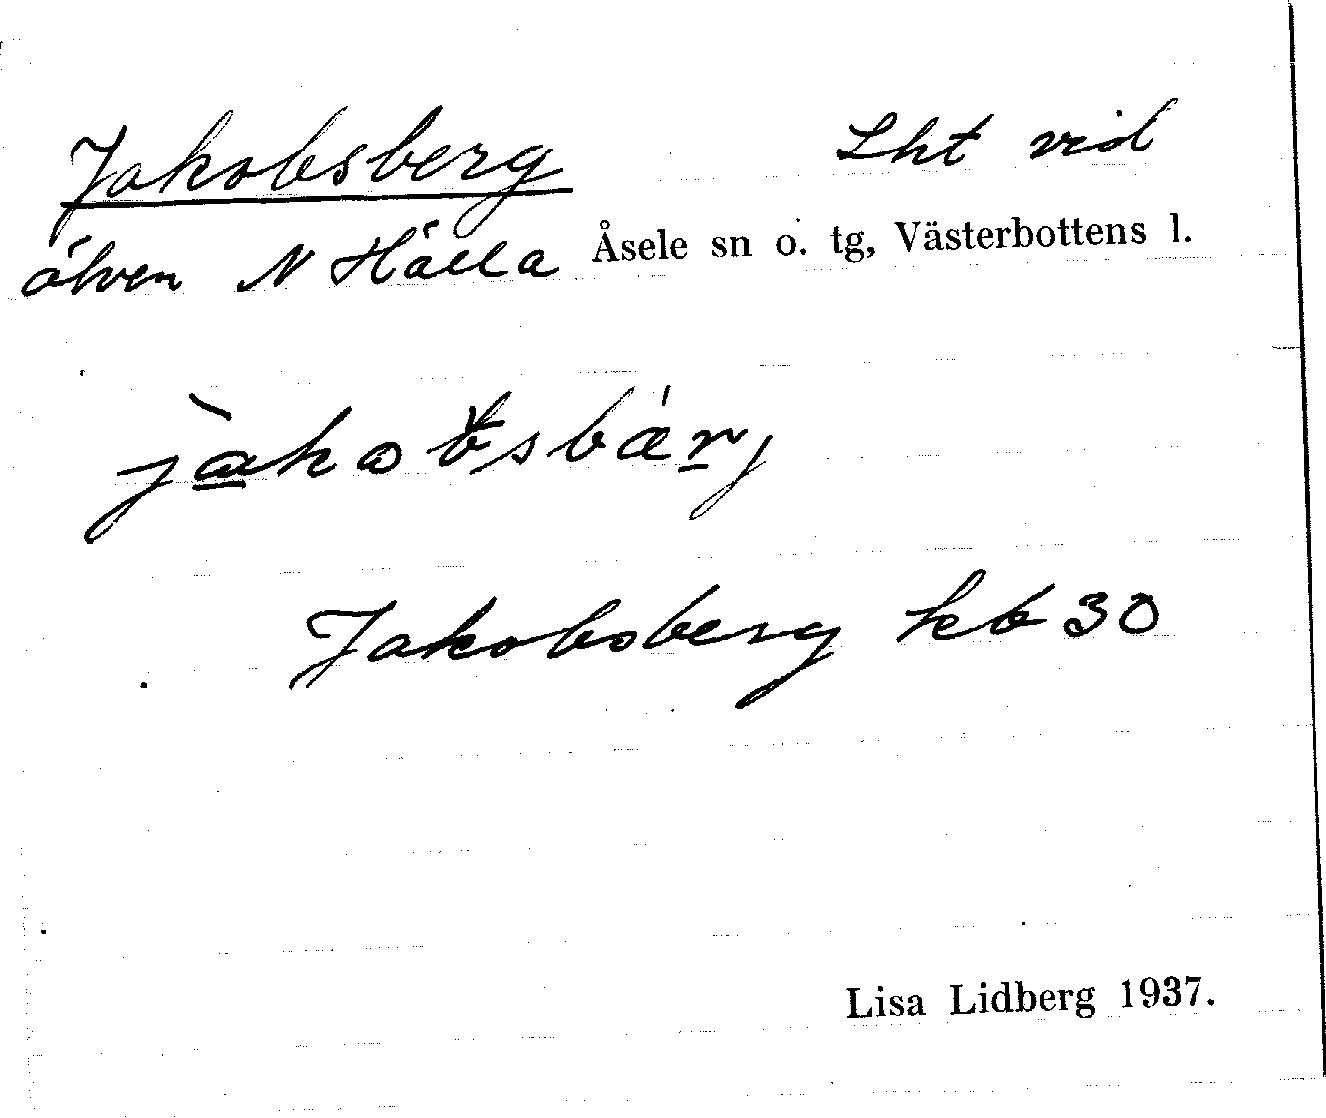 Jakobsberg Lht vid
älven N Hälla Åsele sn o. tg, Västerbottens l.
Jakobsberg kb 30
Lisa Lidberg 1937.